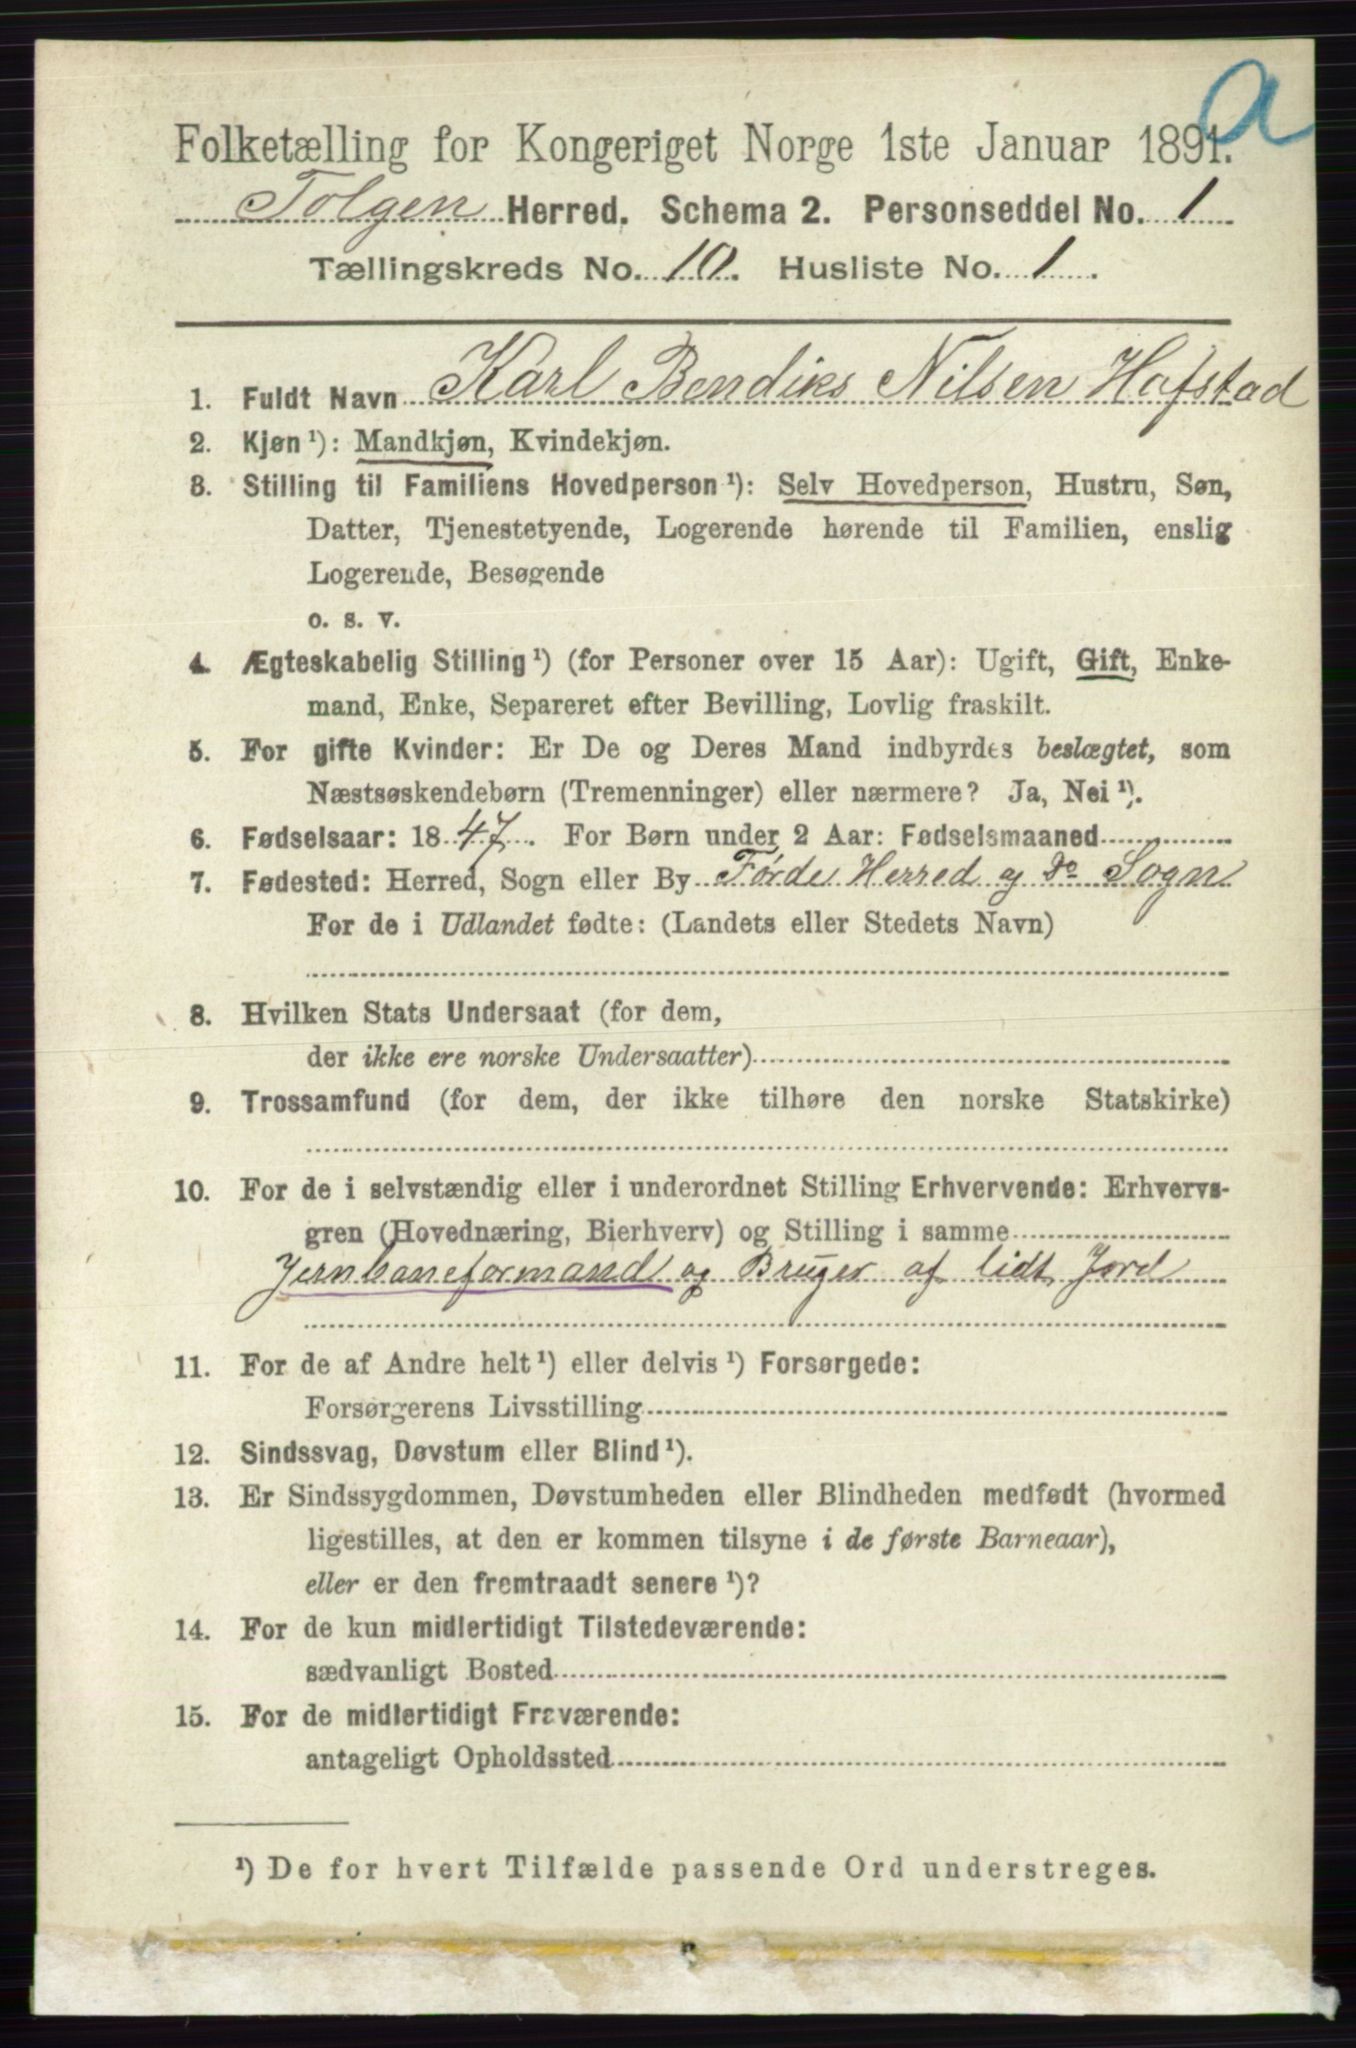 a
Folketælling for Kongeriget Norge 1ste Januar 1891.
Tolgen Herred. Schema 2. Personseddel No. 1
Tællingskreds No. 10. Husliste No. 1.
1. Fuldt Navn Karl Bendiks Nilsen Hafstad
2. Kjøn ¹): Mandkjøn, Kvindekjøn.
3. Stilling til Familiens Hovedperson ¹): Selv Hovedperson, Hustru, Søn,
Datter, Tjenestetyende, Logerende hørende til Familien, enslig
Logerende, Besøgende
o. s. v.
4. Ægteskabelig Stilling ¹) (for Personer over 15 Aar): Ugift, Gift, Enke-
mand, Enke, Separeret efter Bevilling, Lovlig fraskilt.
5. For gifte Kvinder: Er De og Deres Mand indbyrdes beslægtet, som
Næstsøskendebørn (Tremenninger) eller nærmere? Ja, Nei ¹).
6. Fødselsaar: 1847. For Børn under 2 Aar: Fødselsmaaned
7. Fødested: Herred, Sogn eller By Førde Herred og do Sogn
For de i Udlandet fødte: (Landets eller Stedets Navn)
8. Hvilken Stats Undersaat (for dem,
der ikke ere norske Undersaatter)
9. Trossamfund (for dem, der ikke tilhøre den norske Statskirke)
10. For de i selvstændig eller i underordnet Stilling Erhvervende: Erhvervs-
gren (Hovednæring, Bierhverv) og Stilling i samme
Jernbaneformand og Bruger af lidt Jord
11. For de af Andre helt ¹) eller delvis ¹) Forsørgede:
Forsørgerens Livsstilling
12. Sindssvag, Døvstum eller Blind ¹).
13. Er Sindssygdommen, Døvstumheden eller Blindheden medfødt (hvormed
ligestilles, at den er kommen tilsyne i de første Barneaar),
eller er den fremtraadt senere ¹)?
14. For de kun midlertidigt Tilstedeværende:
sædvanligt Bosted
15. For de midlertidigt Fraværende:
antageligt Opholdssted
¹) De for hvert Tilfælde passende Ord understreges.